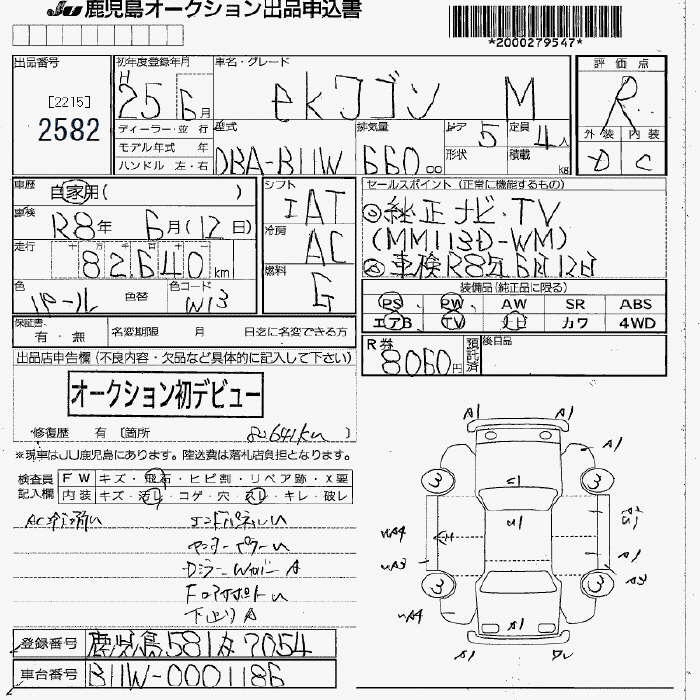 JU 鹿児島オークション出品申込書
*2000279547*
出品番号
[2215]
2582
初年度登録年月
H 25 6月
車名・グレード
ekワゴン M
評価点
R
外装 内装
D C
ディーラー・並行
モデル年式 年
ハンドル 左・右
型式
DBA-B11W
排気量
660 cc
ドア 5
形状
定員 4人
積載 kg
車歴
自家用( )
車検
R8年 6月(12日)
走行
十 万 千 百 十 一
82640 km
色
パール
色替
色コード
W13
シフト
IAT
冷房
AC
燃料
G
セールスポイント (正常に機能するもの)
◎純正ナビ・TV
(MM113D-WM)
◎車検R8年6月12日
装備品(純正品に限る)
PS PW AW SR ABS
エアB TV ナビ カワ 4WD
保証書
有・無
名変期限 月 日迄に名変できる方
R券
8060円
預託済
後日品
出品店申告欄(不良内容・欠品など具体的に記入して下さい)
オークション初デビュー
修復歴 有 〔箇所 82641km 〕
※現車はJU鹿児島にあります。陸送費は落札店負担となります。
検査員記入欄
FW キズ・飛石・ヒビ割・リペア跡・X要
内装 キズ・汚レ・コゲ・穴・スレ・キレ・破レ
下廻りA
登録番号 鹿児島581 7054
車台番号 B11W-0001186
A1 A1
3 3
A1
U1
A4
A3
A1
A3
3 3
A4
A1
A1